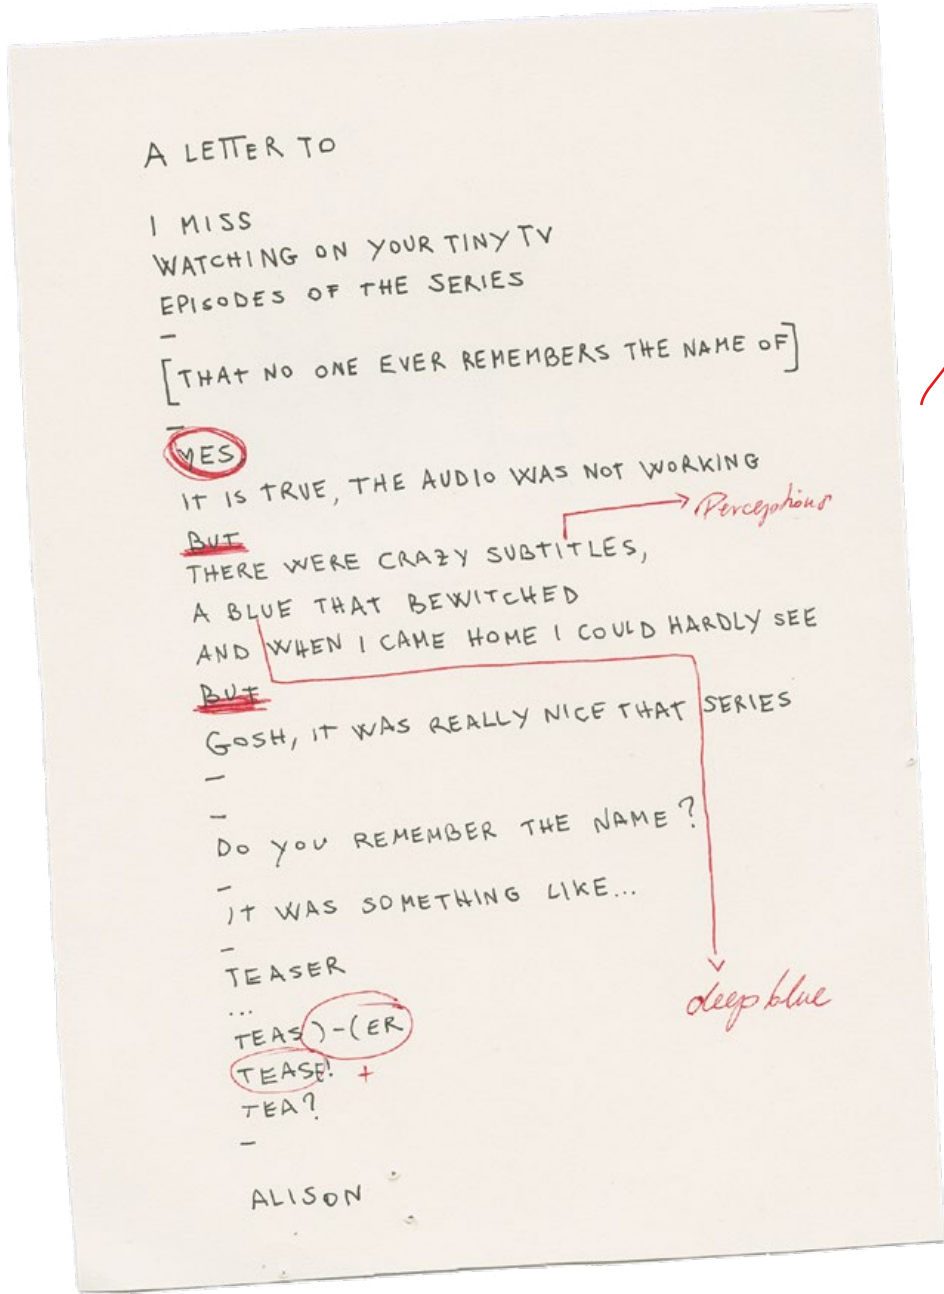 A LETTER TO
I MISS
WATCHING ON YOUR TINY TV
EPISODES OF THE SERIES
–
[THAT NO ONE EVER REMEMBERS THE NAME OF]
–
YES
IT IS TRUE, THE AUDIO WAS NOT WORKING
Perceptions
BUT
THERE WERE CRAZY SUBTITLES,
A BLUE THAT BEWITCHED
AND WHEN I CAME HOME I COULD HARDLY SEE
BUT
GOSH, IT WAS REALLY NICE THAT SERIES
–
–
DO YOU REMEMBER THE NAME?
–
IT WAS SOMETHING LIKE...
–
TEASER
deep blue
...
TEAS)-(ER
TEASE! +
TEA?
–
ALISON